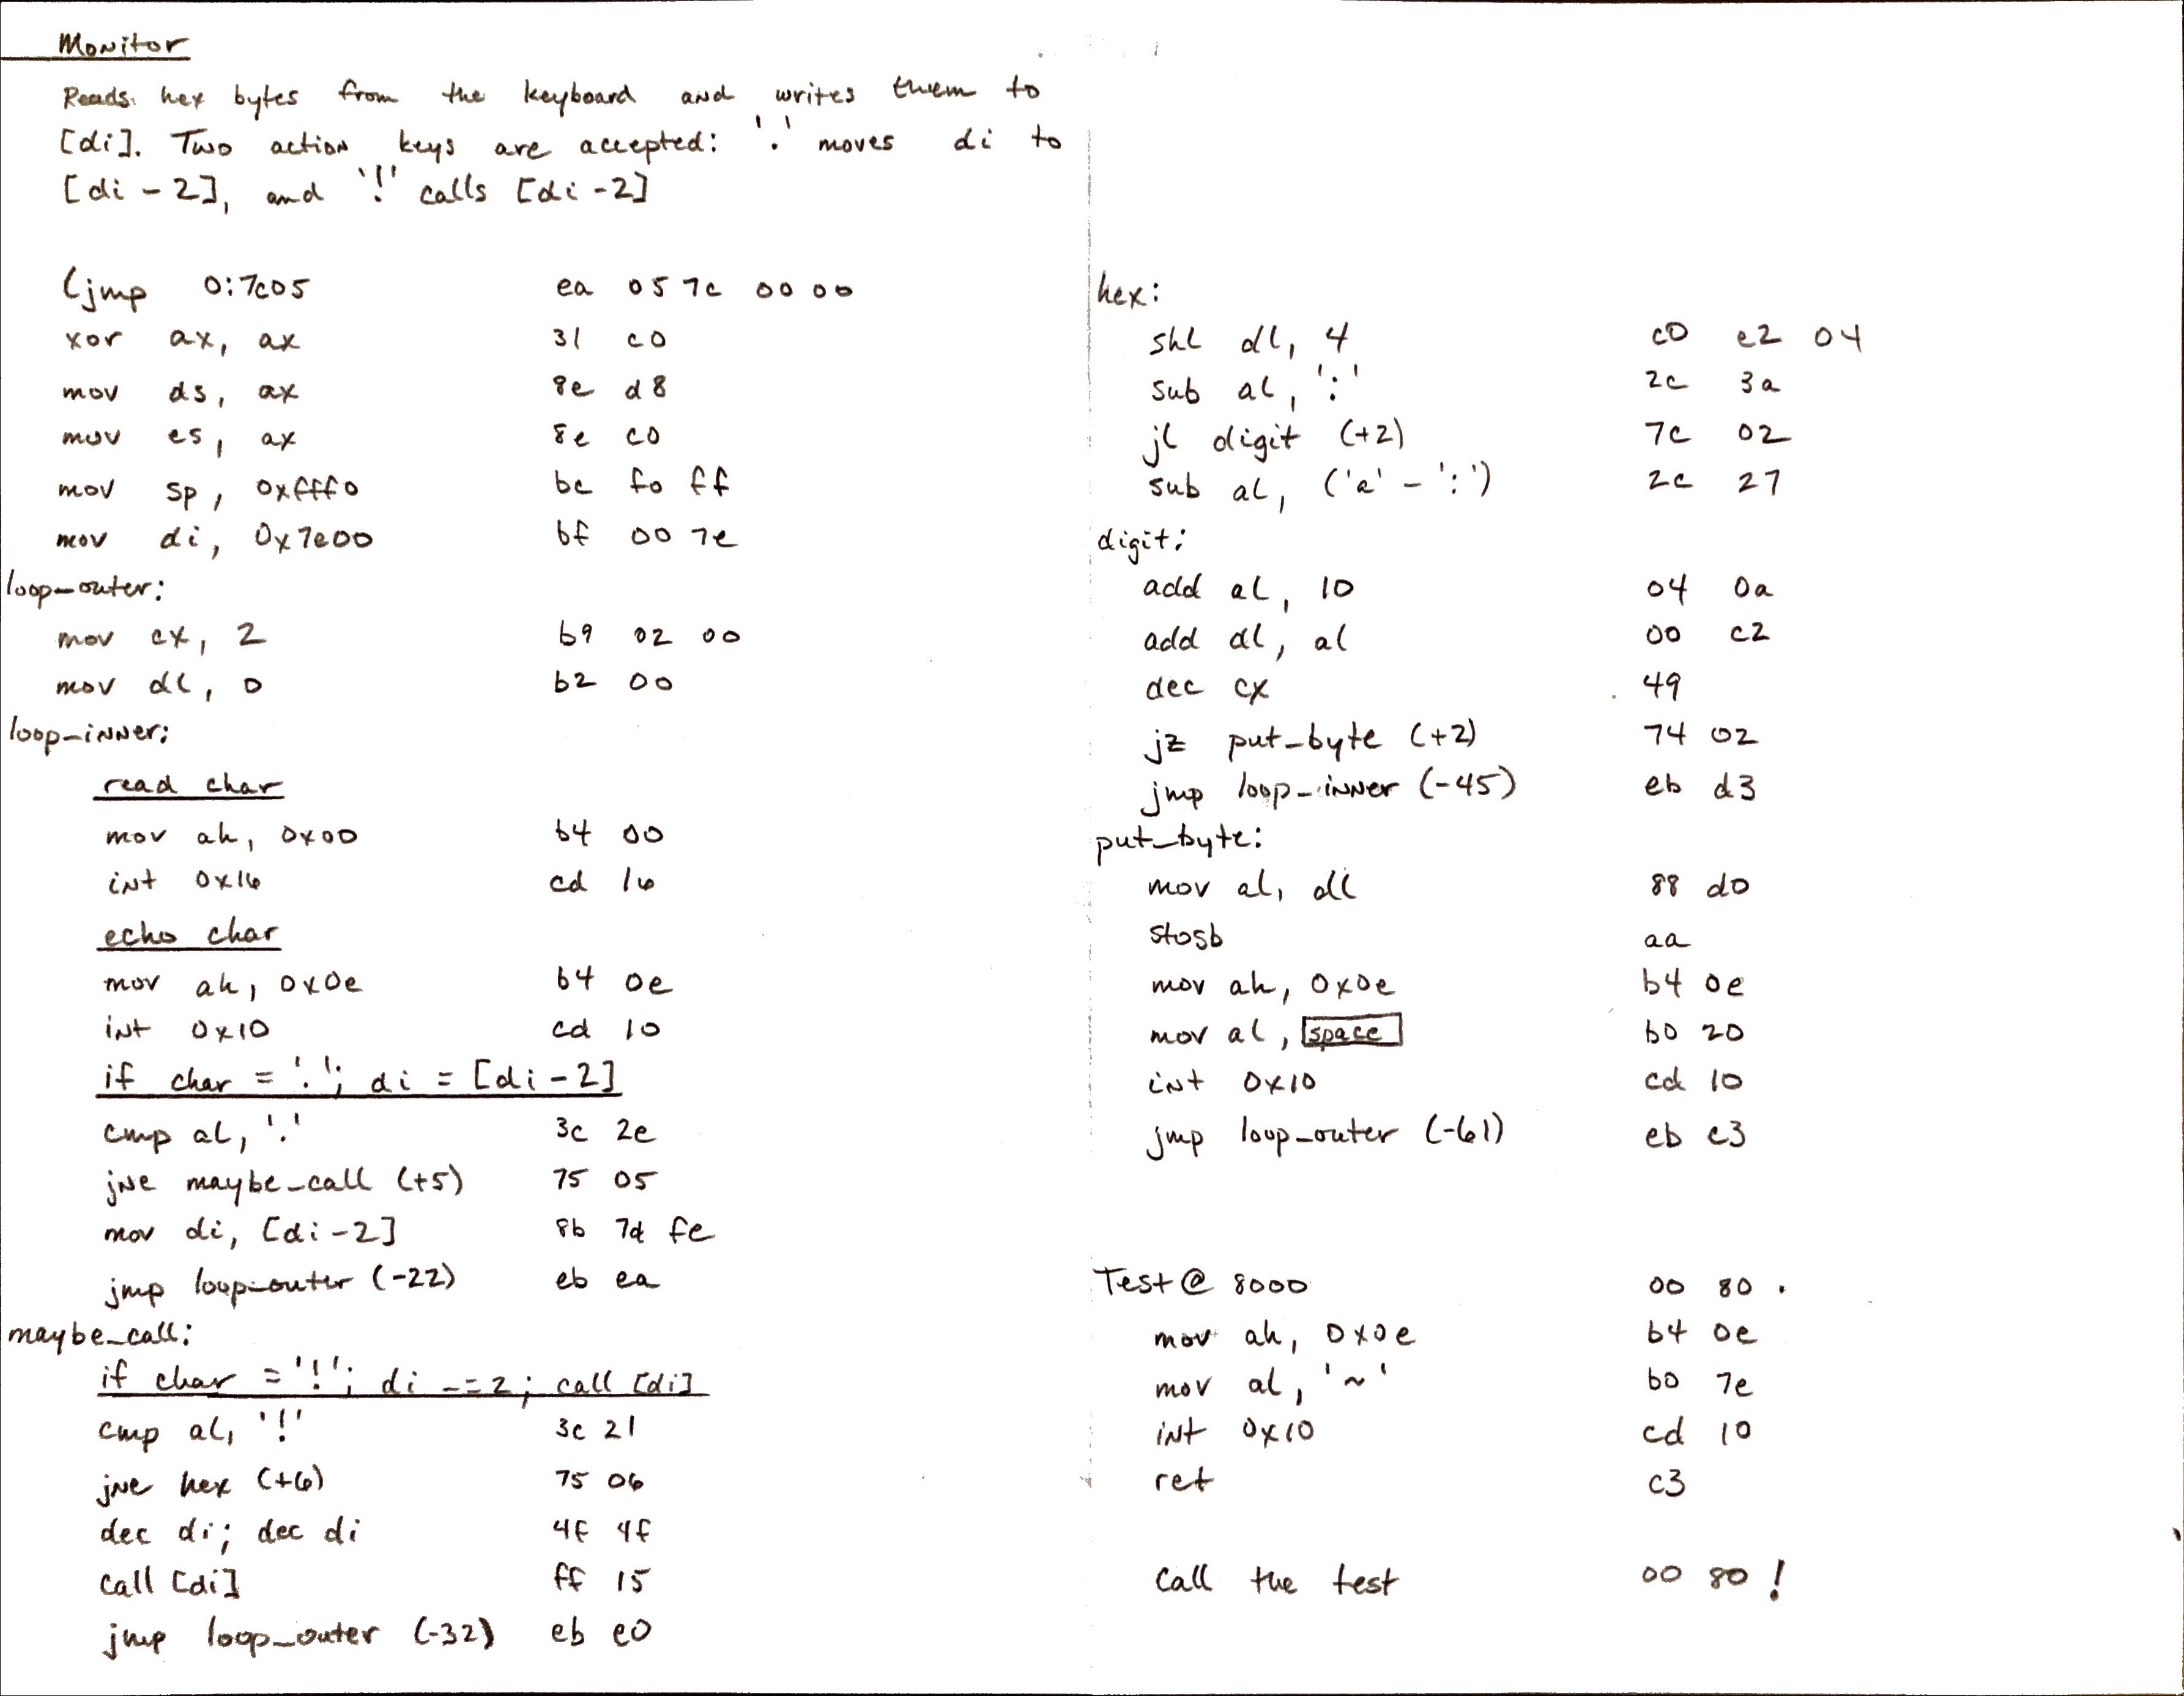 Monitor
Reads hex bytes from the keyboard and writes them to
[di]. Two action keys are accepted: '.' moves di to
[di - 2], and '!' calls [di - 2]
ljmp 0:7c05 ea 05 7c 00 00
xor ax, ax 31 c0
mov ds, ax 8e d8
mov es, ax 8e c0
mov sp, 0xfff0 bc f0 ff
mov di, 0x7e00 bf 00 7e
loop_outer:
mov cx, 2 b9 02 00
mov dl, 0 b2 00
loop_inner:
read char
mov ah, 0x00 b4 00
int 0x16 cd 16
echo char
mov ah, 0x0e b4 0e
int 0x10 cd 10
if char = '.'; di = [di - 2]
cmp al, '.' 3c 2e
jne maybe_call (+5) 75 05
mov di, [di-2] 8b 7d fe
jmp loop_outer (-22) eb ea
maybe_call:
if char = '!'; di -= 2; call [di]
cmp al, '!' 3c 21
jne hex (+6) 75 06
dec di; dec di 4f 4f
call [di] ff 15
jmp loop_outer (-32) eb e0
hex:
shl dl, 4 c0 e2 04
sub al, ':' 2c 3a
jl digit (+2) 7c 02
sub al, ('a' - ':') 2c 27
digit:
add al, 10 04 0a
add dl, al 00 c2
dec cx 49
jz put_byte (+2) 74 02
jmp loop_inner (-45) eb d3
put_byte:
mov al, dl 88 d0
stosb aa
mov ah, 0x0e b4 0e
mov al, space b0 20
int 0x10 cd 10
jmp loop_outer (-61) eb c3
Test @ 8000 00 80 .
mov ah, 0x0e b4 0e
mov al, '~' b0 7e
int 0x10 cd 10
ret c3
call the test 00 80 !